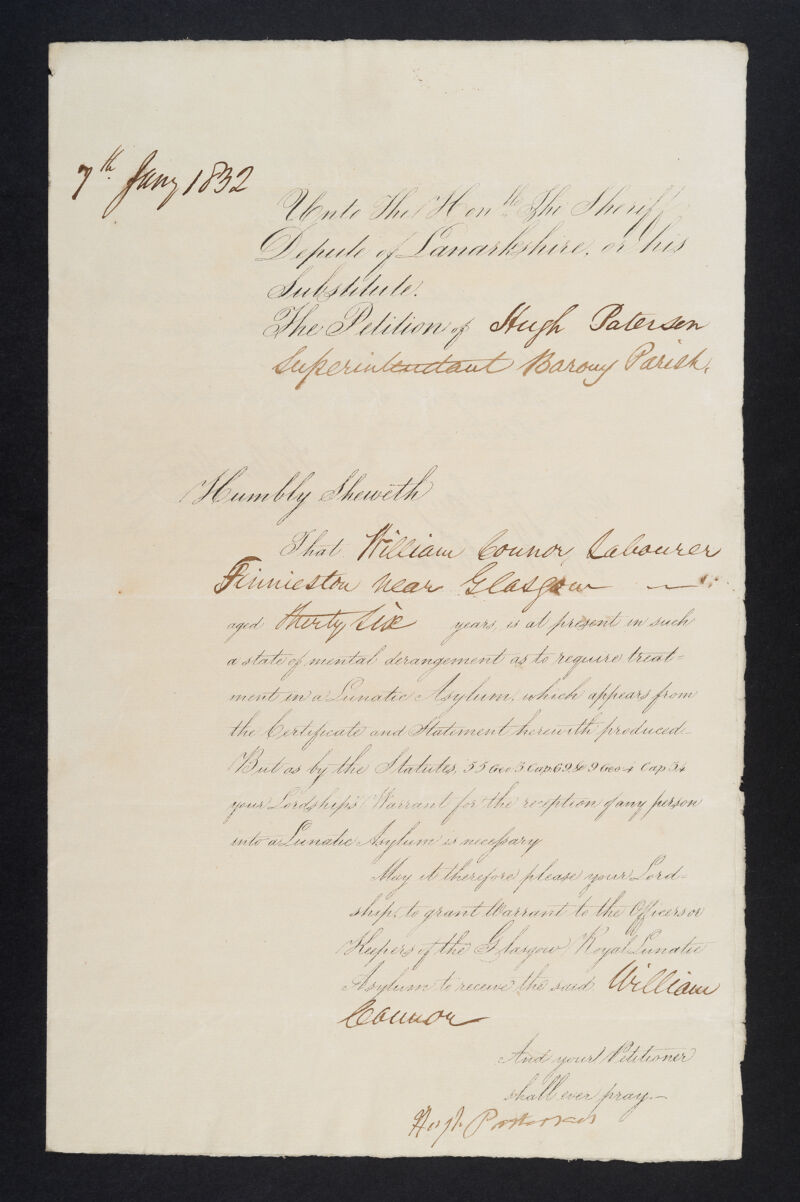 7th Jany 1832
Unto The Honble The Sheriff
Depute of Lanarkshire, or his
Substitute.
The Petition of Hugh Paterson
Superintendant Barony Parish.
Humbly Sheweth
That William Connor, Labourer
Finnieston near Glasgow —
aged thirty six years, is at present in such
a state of mental derangement as to require treat=
ment in a Lunatic Asylum, which appears from
the Certificate and Statement herewith produced.
But as by the Statutes, 55 Geo 3 Cap 69 & 9 Geo 4 Cap 34
your Lordships' Warrant for the reception of any person
into a Lunatic Asylum is necessary
May it therefore please your Lord=
ship, to grant Warrant to the Officers or
Keepers of the Glasgow Royal Lunatic
Asylum to receive the said William
Connor
And your Petitioner
shall ever pray.—
Hugh Paterson